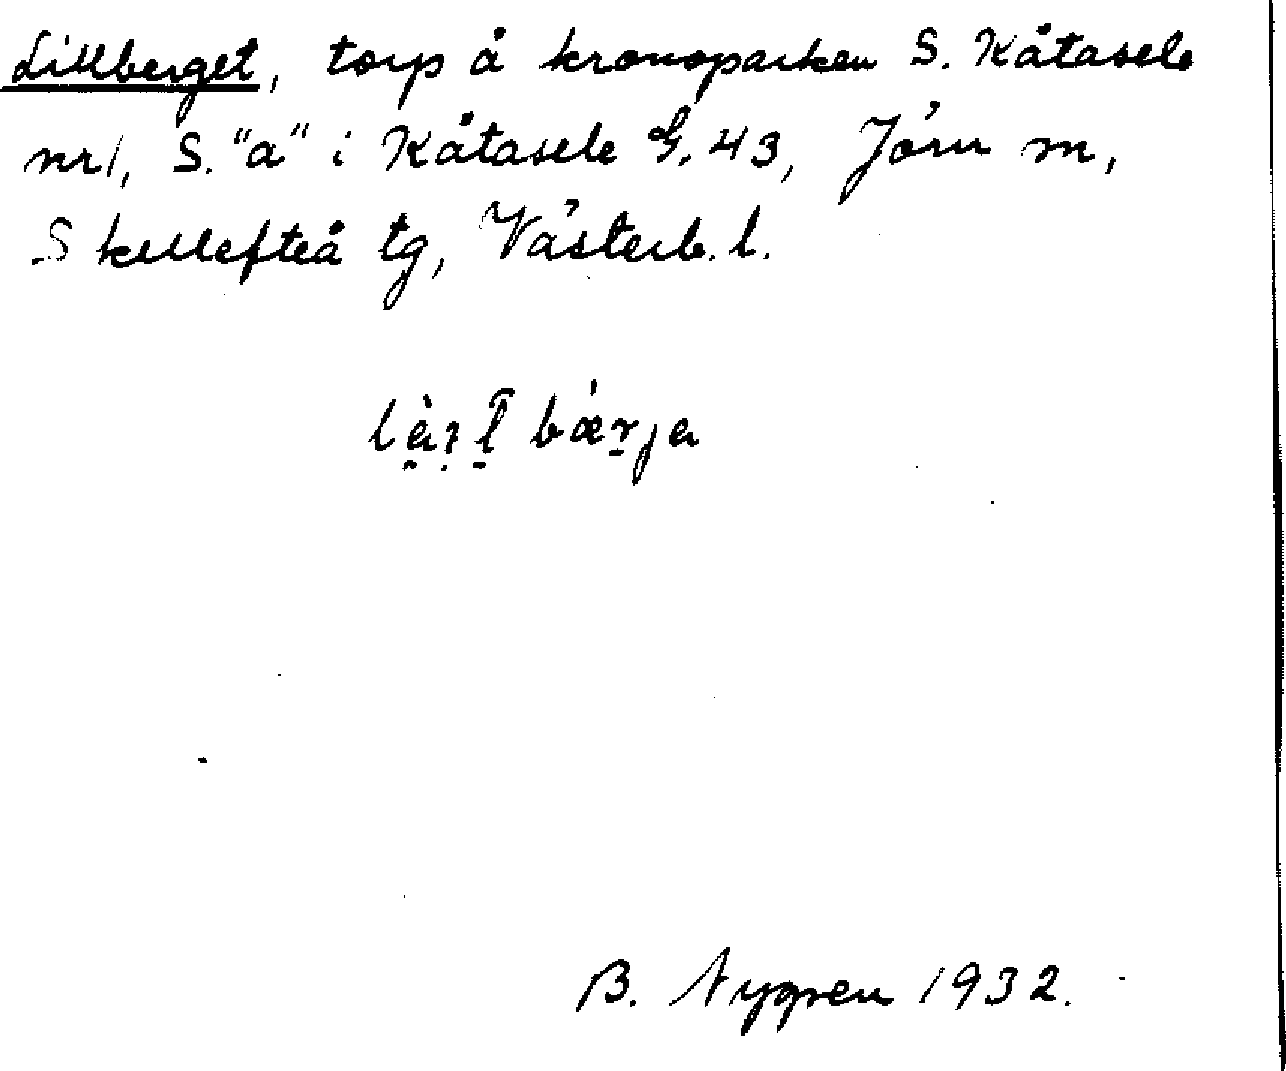 Lillberget, torp å kronoparken S. Kåtasele
nr 1, S. "a" i Kåtasele G. 43, Jörn sn,
Skellefteå tg, Västerb. l.
bærja
B. Nygren 1932.